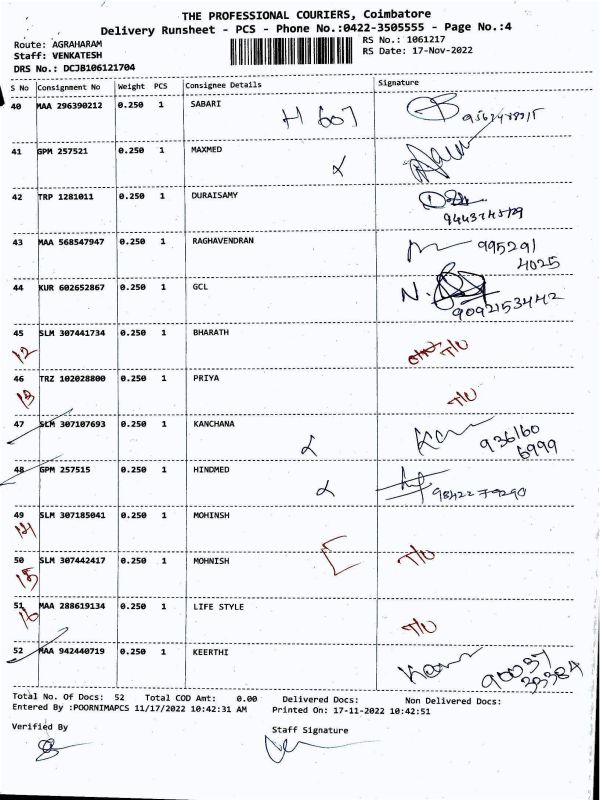 THE PROFESSIONAL COURIERS, Coimbatore
Delivery Runsheet - PCS - Phone No.:0422-3505555 - Page No.:4
Route: AGRAHARAM RS No.: 1061217
Staff: VENKATESH RS Date: 17-Nov-2022
DRS No.: DCJB106121704
S No Consignment No Weight PCS Consignee Details Signature
40 MAA 296390212 0.250 1 SABARI H 607
41 GPM 257521 0.250 1 MAXMED
42 TRP 1281011 0.250 1 DURAISAMY
43 MAA 568547947 0.250 1 RAGHAVENDRAN 995291
4025
44 KUR 602652867 0.250 1 GCL N.
9092153442
45 SLM 307441734 0.250 1 BHARATH T/U
12
46 TRZ 102028800 0.250 1 PRIYA T/U
13
47 SLM 307107693 0.250 1 KANCHANA 936160
6999
48 GPM 257515 0.250 1 HINDMED 98422 79290
49 SLM 307185041 0.250 1 MOHINSH
14
50 SLM 307442417 0.250 1 MOHNISH T/U
15
51 MAA 288619134 0.250 1 LIFE STYLE T/U
16
52 MAA 942440719 0.250 1 KEERTHI
Total No. Of Docs: 52 Total COD Amt: 0.00 Delivered Docs: Non Delivered Docs:
Entered By :POORNIMAPCS 11/17/2022 10:42:31 AM Printed On: 17-11-2022 10:42:51
Verified By Staff Signature